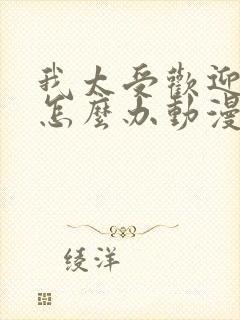 我太受歡迎
怎麼办動漫
绫洋